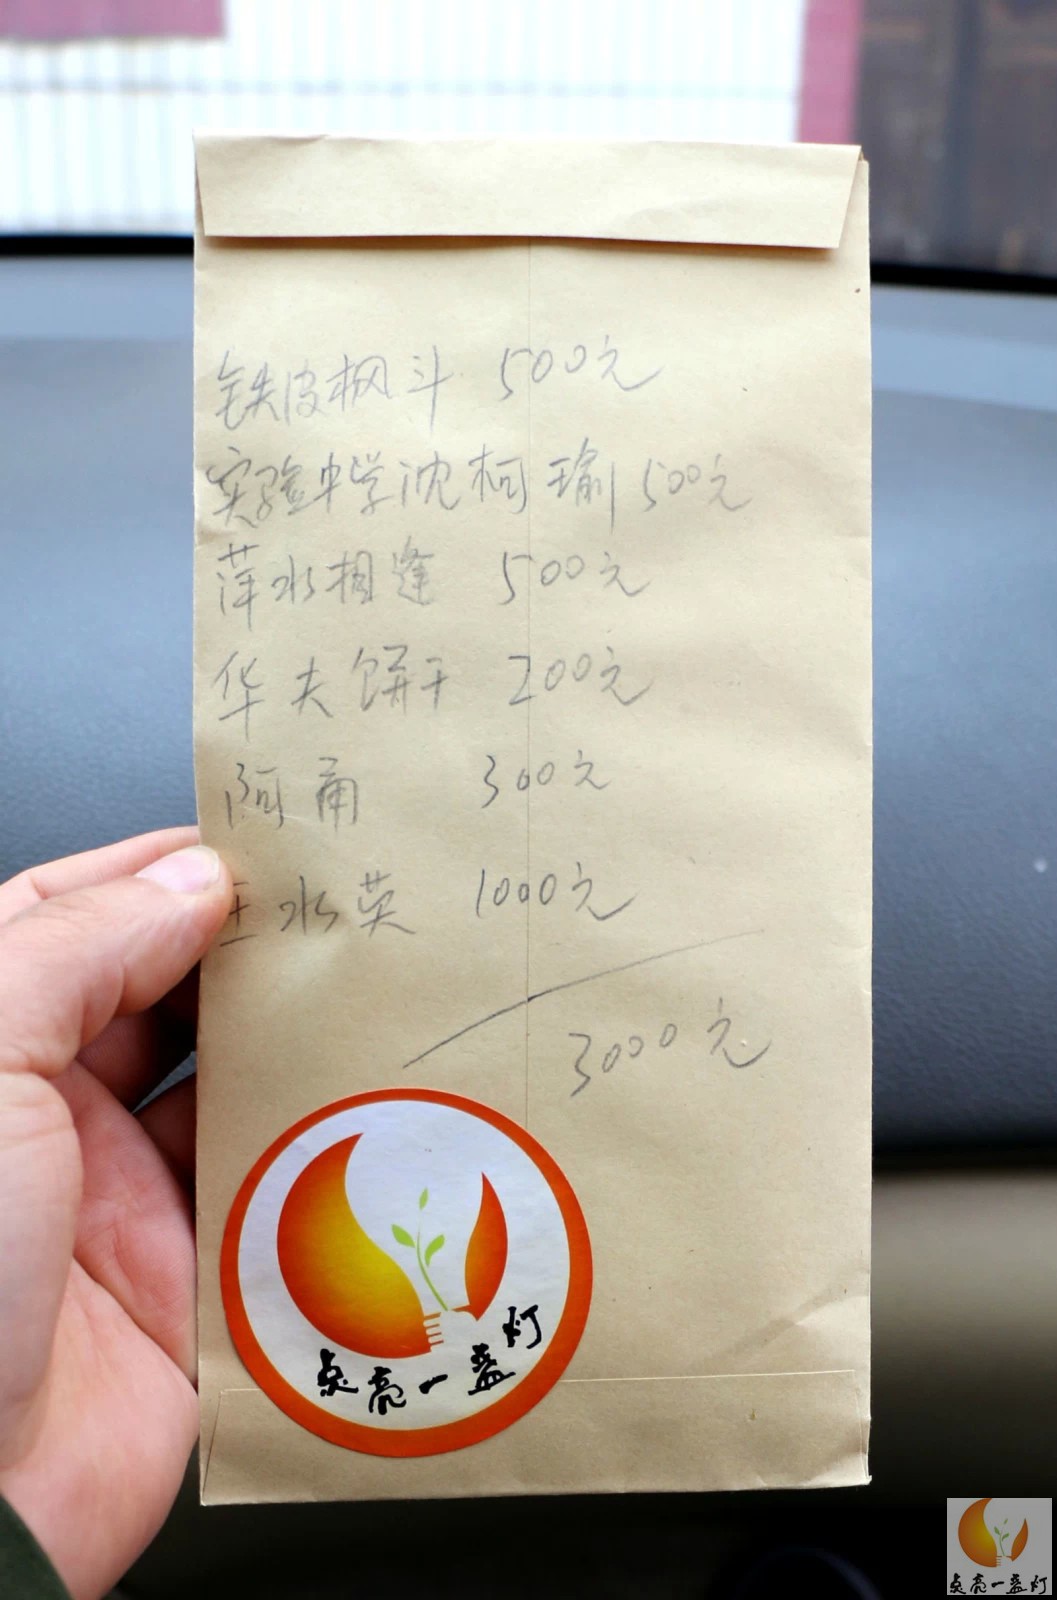 铁皮枫斗 500元
实验中学沈柯瑜 500元
萍水相逢 500元
华夫饼干 200元
阿甬 300元
王水英 1000元
3000元
点亮一盏灯
点亮一盏灯